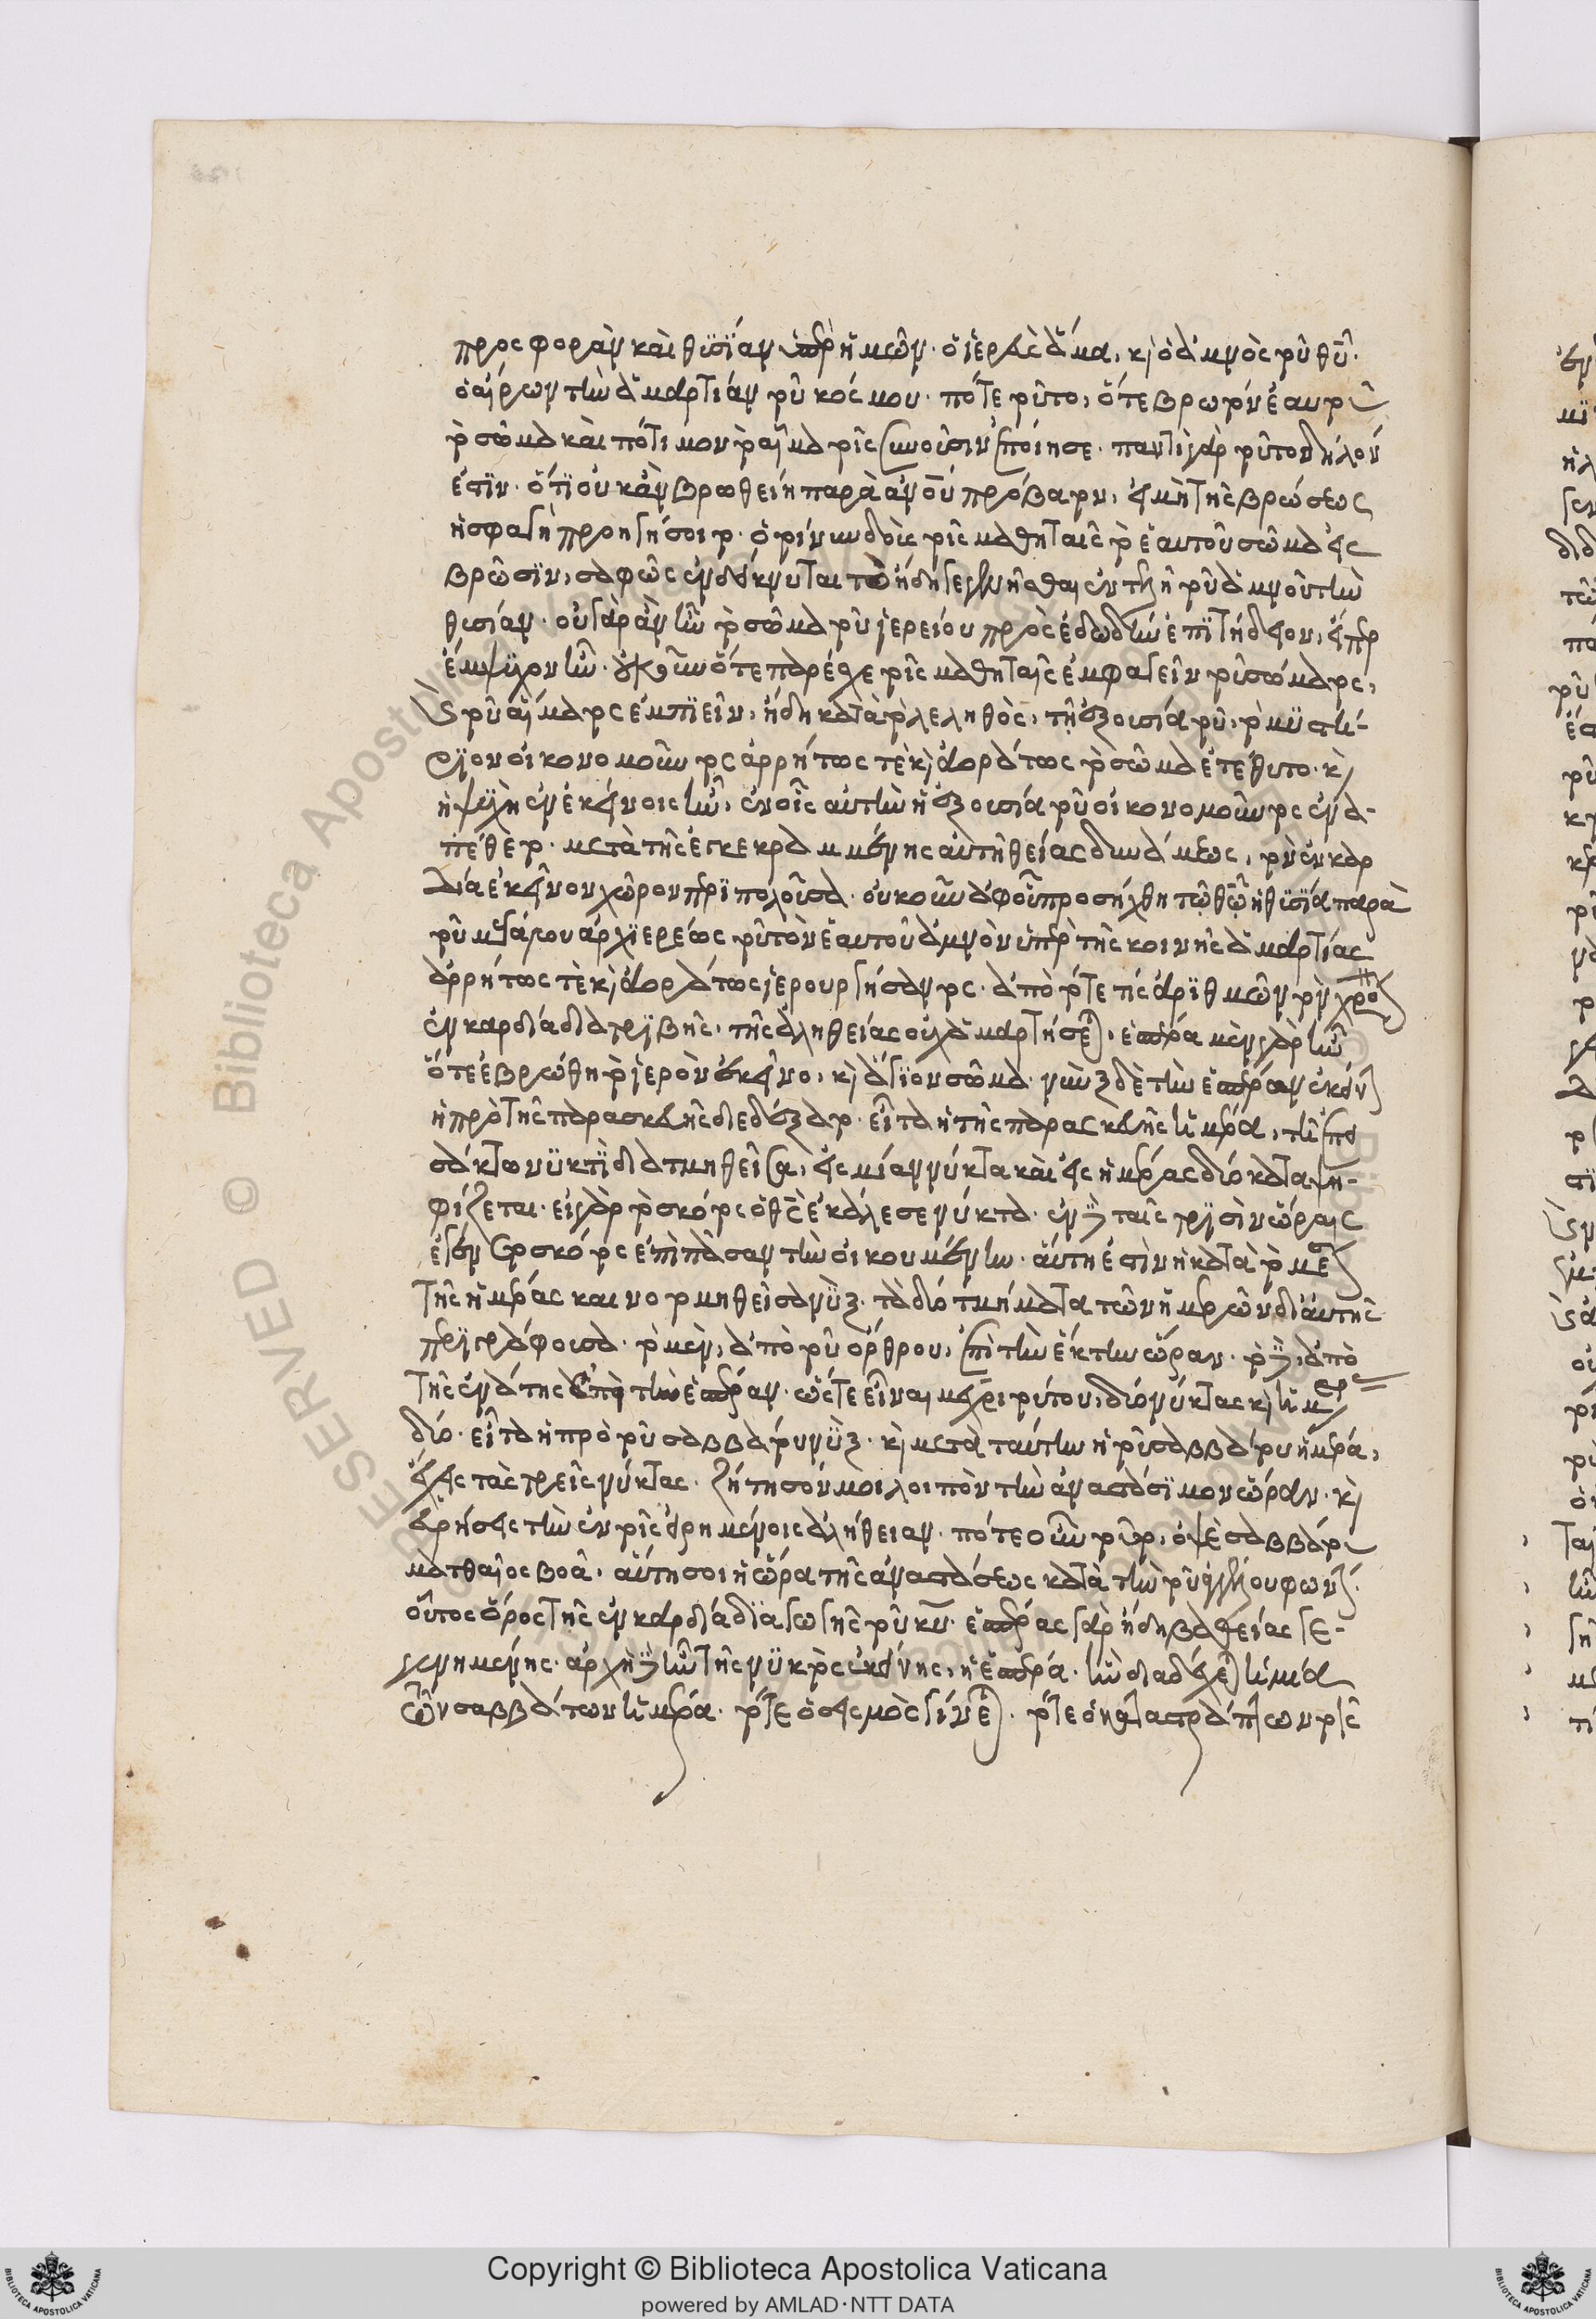 προσφορὰν καὶ θυσίαν ὑπὲρ ἡμῶν. ὁ ἱερεὺς ἅμα, καὶ ὁ ἀμνὸς τοῦ θυ.
ὁ αἴρων τὴν ἁμαρτίαν τοῦ κόσμου. πότε τοῦτο, ὅτε βρωτὸν ἑαυτοῦ
τὸ σῶμα καὶ πότιμον τὸ αἷμα τοῖς συνοῦσιν ἐποίησε. παντὶ γὰρ τοῦτο δῆλόν
ἐστιν. ὅτι οὐκ ἂν βρωθείη παρὰ ἀνου πρόβατον, εἰ μὴ τῆς βρώσεως
ἡ σφαγὴ προηγήσοιτο. ὁ τοίνυν δοὺς τοῖς μαθηταῖς τὸ ἑαυτοῦ σῶμα εἰς
βρῶσιν, σαφῶς ἐνδείκνυται τῶ ἤδη γεγενῆσθαι ἐντελῆ τοῦ ἀμνοῦ τὴν
θυσίαν. οὐ γὰρ ἂν ἦν τὸ σῶμα τοῦ ἱερείου πρὸς ἐδωδὴν ἐπιτήδειον, εἴπερ
ἔμψυχον ἦν. οὐκοῦν ὅτε παρέσχε τοῖς μαθηταῖς ἐμφαγεῖν τοῦ σώματος,
καὶ τοῦ αἵματος ἐμπιεῖν, ἤδη κατὰ τὸ λεληθὸς, τῆ ἐξουσία τοῦ, τὸ μυστή-
ριον οἰκονομοῦντος ἀρρήτως τὲ καὶ ἀοράτως τὸ σῶμα ἐτέθυτο. καὶ
ἡ ψυχὴ ἐν ἐκείνοις ἦν, ἐν οἷς αὐτὴν ἡ ἐξουσία τοῦ οἰκονομοῦντος ἐνα-
πέθετο. μετὰ τῆς ἐγκεκραμμένης αὐτῆ θείας δυνάμεως, τὸν ἐν καρ
δία ἐκεῖνον χῶρον περιπολοῦσα. οὐκοῦν ἀφοῦ προσήχθη τῶ θω ἡ θυσία παρὰ
τοῦ μεγάλου ἀρχιερέως τοῦ τὸν ἑαυτοῦ ἀμνὸν ὑπὲρ τῆς κοινῆς ἁμαρτίας
ἀρρήτως τὲ καὶ ἀοράτως ἱερουργήσαντος. ἀπὸ τότε τίς ἀριθμῶν τὸν χρόνον
ἐν καρδία διατριβῆς. τῆς ἀληθείας οὐχ ἁμαρτήσεται. ἑσπέρα μὲν γὰρ ἦν
ὅτε ἐβρώθη τὸ ἱερὸν ἐκεῖνο, καὶ ἅγιον σῶμα. νὺξ δὲ τὴν ἑσπέραν ἐκείνην
ἡ πρὸ τῆς παρασκευῆς διεδέξατο. εἶτα ἡ τῆς παρασκευῆς ἡμέρα, τῆ ἐπει
σάκτω νυκτὶ διατμηθεῖσα, εἰς μίαν νύκτα καὶ εἰς ἡμέρας δύο καταψη-
φίζεται. εἰ γὰρ τὸ σκότος ὁ θς ἐκάλεσε νύκτα. ἐν δὲ ταῖς τρισὶν ὥραις
ἐγένετο σκότος ἐπὶ πᾶσαν τὴν οἰκουμένην. αὕτη ἐστὶν ἡ κατὰ τὸ μέσον
τῆς ἡμέρας καινοτομηθεῖσα νὺξ. τὰ δύο τμήματα τῶν ἡμερῶν δι' αὐτῆς
περιγράφουσα. τὸ μὲν, ἀπὸ τοῦ ὄρθρου, ἐπὶ τὴν ἕκτην ὥραν. τὸ δὲ, ἀπὸ
τῆς ἐνάτης ἐπὶ τὴν ἑσπέραν. ὥστε εἶναι μέχρι τούτου, δύο νύκτας καὶ ἡμέρας
δύο. εἶτα ἡ πρὸ τοῦ σαββάτου νὺξ. καὶ μετὰ ταύτην ἡ τοῦ σαββάτου ἡμέρα,
ἔχεις τὰς τρεῖς νύκτας. ζήτησόν μοι λοιπὸν τὴν ἀναστάσιμον ὥραν. καὶ
εὑρήσεις τὴν ἐν τοῖς εἰρημένοις ἀλήθειαν. πότε οὖν τοῦτο, ὀψὲ σαββάτου
ματθαῖος βοᾶ. αὕτη σοι ἡ ὥρα τῆς ἀναστάσεως κατὰ τὴν τοῦ ἀγγέλου φωνήν.
οὗτος ὅρος τῆς ἐν καρδία διαγωγῆς τοῦ κυ. ἑσπέρας γὰρ ἤδη βαθείας γε-
γενημένης. ἀρχὴ δὲ ἦν τῆς νυκτὸς ἐκείνης, ἡ ἑσπέρα. ἣν διαδέχεται ἡ μία
τῶν σαββάτων ἡμέρα. τότε ὁ σεισμὸς γίνεται. τότε ὁ καταστράπτων τοῖς